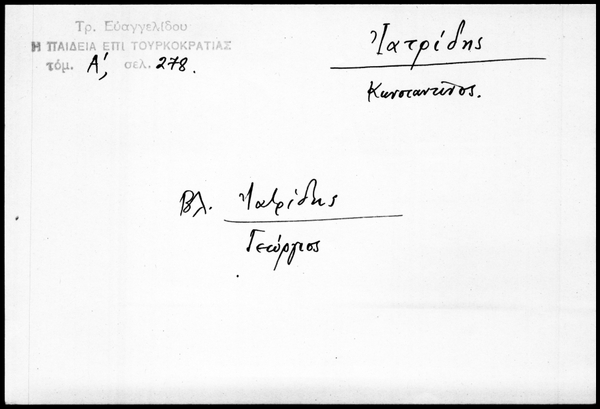 Τρ. Εὐαγγελίδου
Η ΠΑΙΔΕΙΑ ΕΠΙ ΤΟΥΡΚΟΚΡΑΤΙΑΣ
τόμ. Α΄, σελ. 278.
Ἰατρίδης
Κωνσταντῖνος.
Βλ. Ἰατρίδης
Γεώργιος